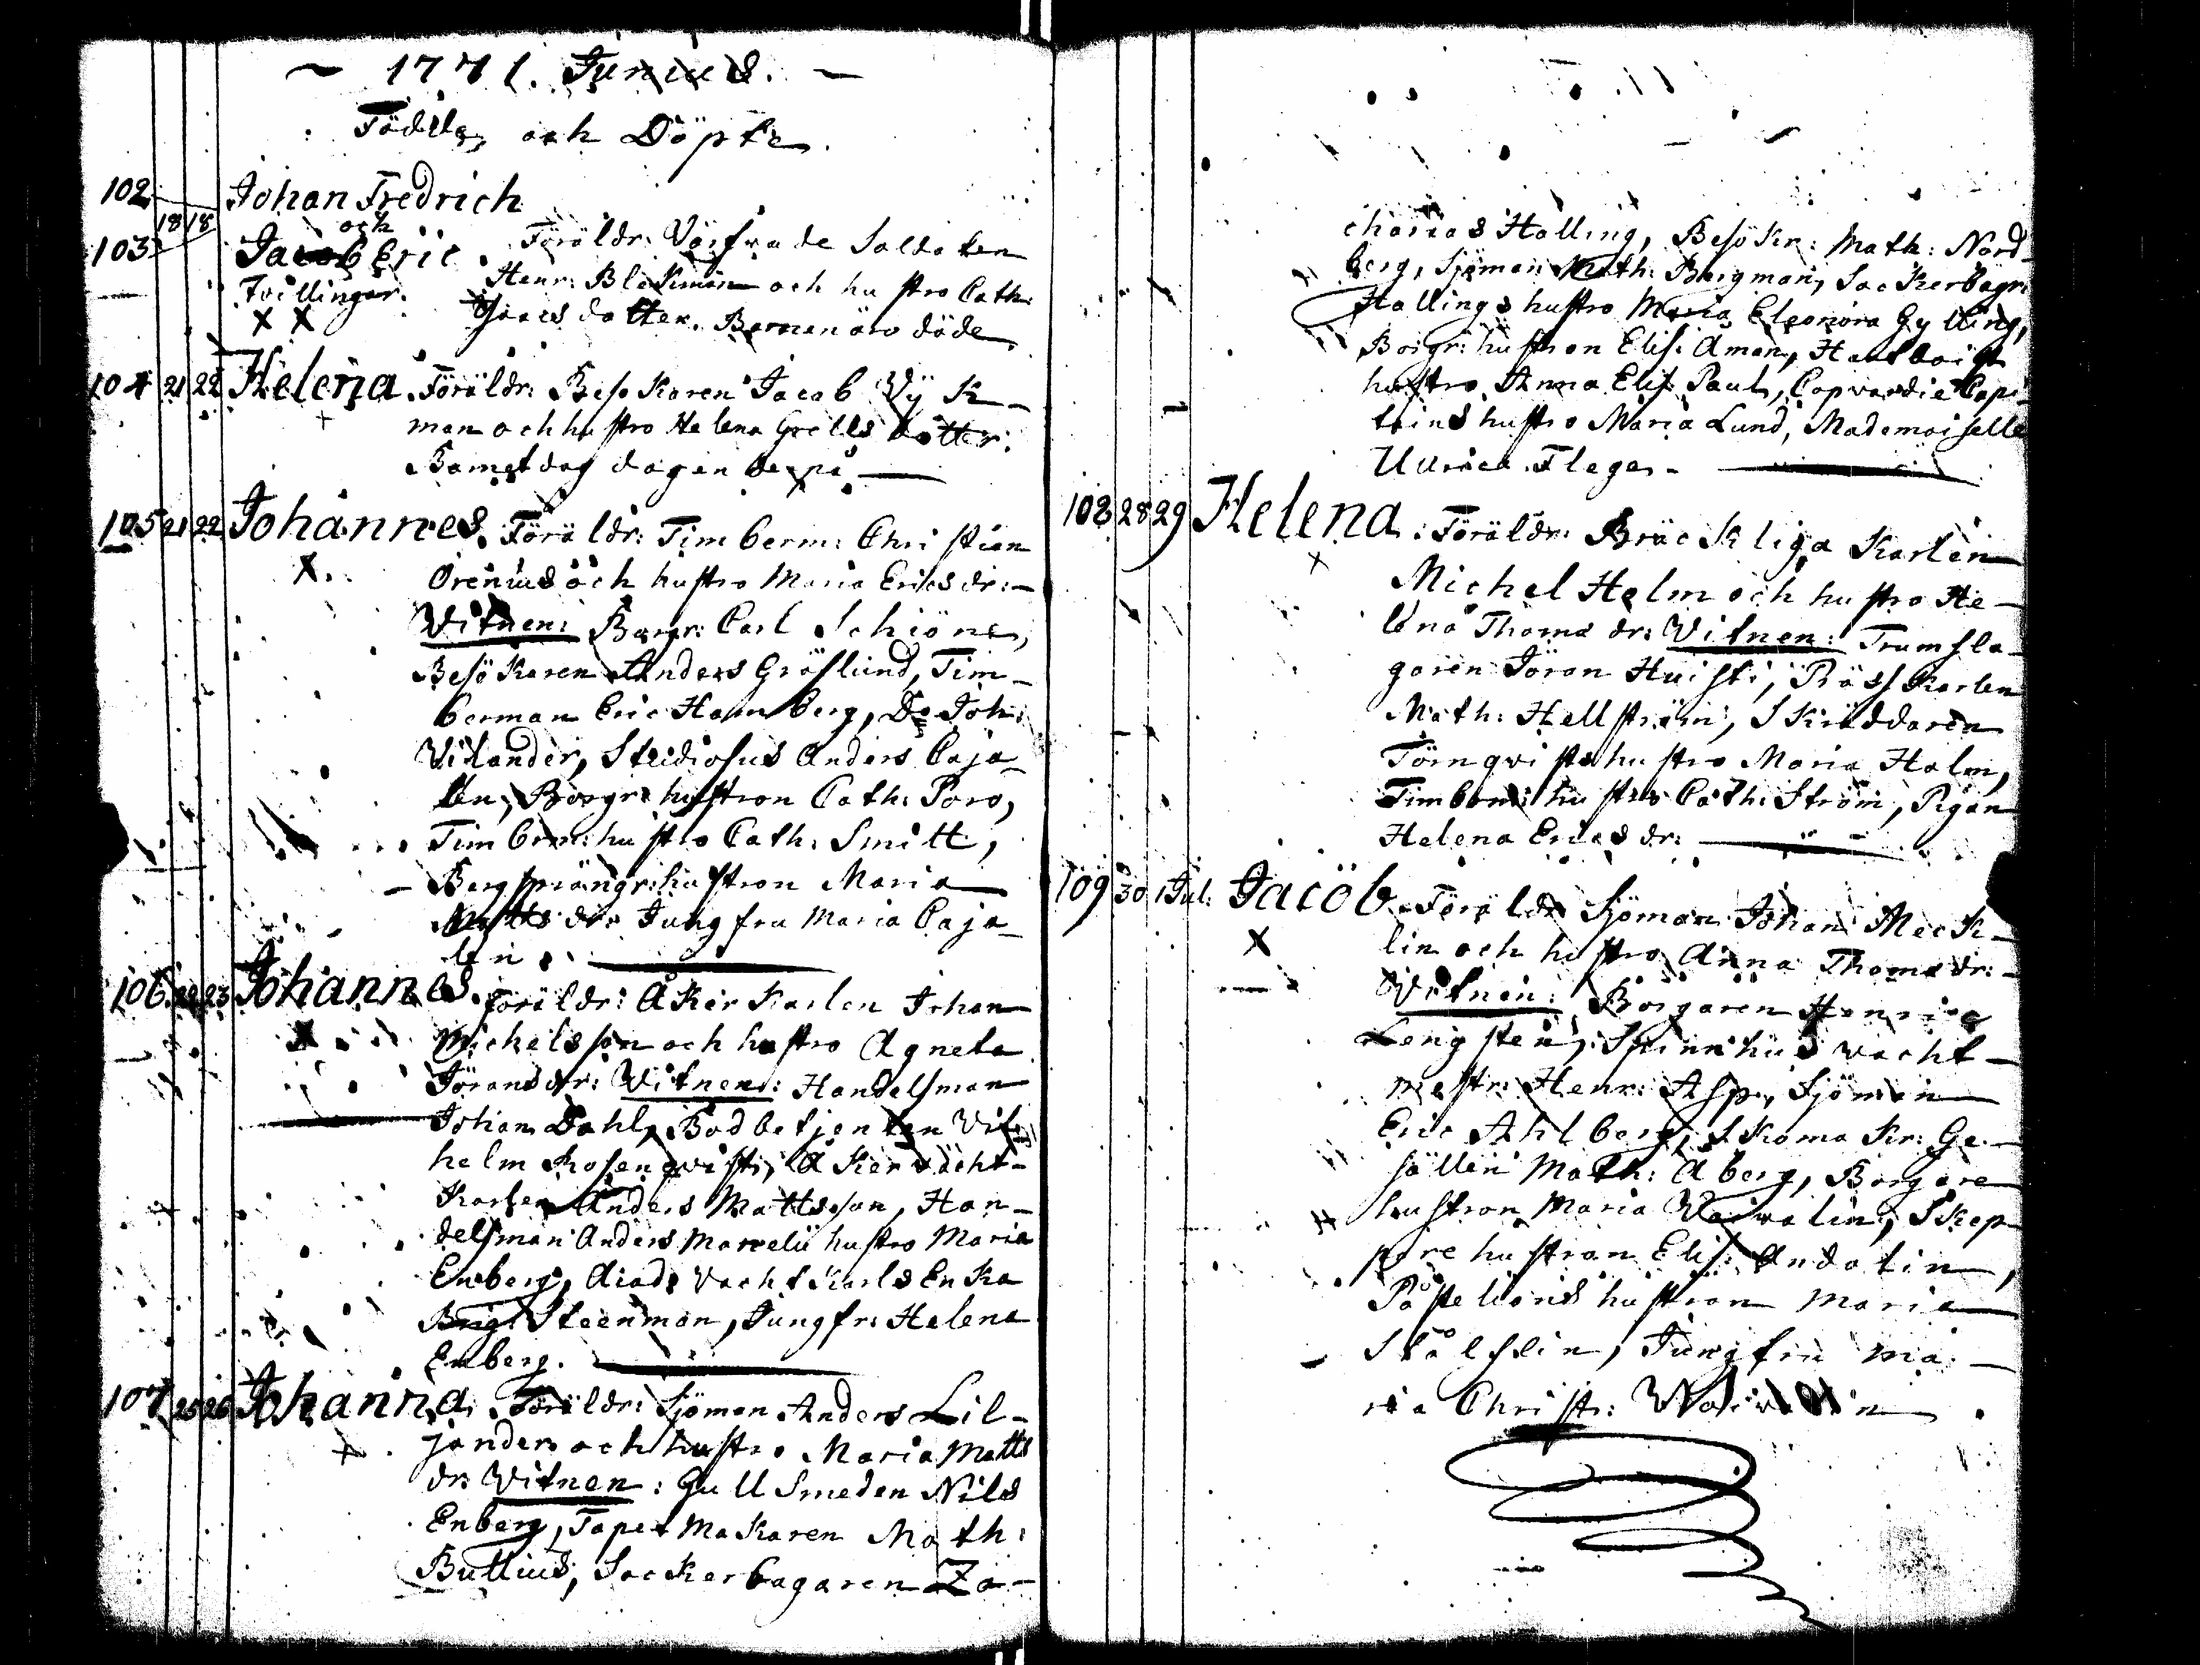 ~ 1771. Junius. ~
Födde, och Döpte.
102 Johan Fredrich
18 18 och
103 Jacob Eric. Föräldr: Värfvade Soldaten
Tvillingar. Henr: Blekman och hustro Cath:
X X dotter. Barnen äro döde
104 21 22 Helena. Föräldr: Besökaren Jacob Wÿk-
man och hustro Helena Grels dotter:
Barnet dog dagen derpå
105 21 22 Johannes. Föräldr: Timberm: Christian
X. Orenius och hustro Maria Ericsdr:
Witnen: Borgr: Carl Schiöne,
Besökaren Anders Gröslund, Tim-
berman Eric Hamberg, Do Joh:
Witander, Studiosus Anders Caja-
len, Borgr: hustron Cath: Poro,
Timberm: hustro Cath: Smitt,
Bergsprängr: hustron Maria
Matts dr: Jungfru Maria Caja-
len.
106 22 23 Johannes. Föräldr: Åkerkarlen Johan
X Michelsson och hustro Agneta
Jöransdr: Witnen: Handelsman
Johan Dahl, Bodbetjenten Wil-
helm Rosenqvist, Åker
Karlen Anders Mattsson, Han-
delsman Anders Marcelii hustro Maria
Enberg, Vachtkarls Enka
Brigt Steenman, Jungfr: Helena
Enberg.
107 25 26 Johanna. Föräldr: Sjöman Anders Lil-
jander och hustro Maria Matts
dr: Witnen: Gullsmeden Nils
Enberg, Tapetmakaren Math:
Bullius, Sockerbagaren Za-
charias Halling, Besökr: Math: Nord-
berg, Sjöman Math: Bergman, Sockerbagr:
Hallings hustro Maria Eleonora Gylling,
Borgr: hustron Elis: Aman,
hustro Anna Elis: Paul, Copvardie Capi-
tains hustro Maria Lund, Mademoiselle
Ulrica Fleger.
108 28 29 Helena. Föräldr: Bräckliga Karlen
X Michel Helm och hustro He-
lena Thomædr: Witnen: Trumsla-
garen Jöran Huisti, Råsskarlen
Math: Hellström, Skräddaren
Törnqvists hustro Maria Holm,
Timberm: hustro Cath: Ström, Pigan
Helena Ericsdr:
109 30 1 Jul: Jacob. Föräldr: Sjöman Johan Meck-
X lin och hustro Anna Thomædr:
Witnen: Borgaren Henric
Lengsten, Spinnhus vacht-
mestr: Henr: Asp, Sjöman
Eric Ahlberg, Skomakr: Ge-
sällen Math: Åberg, Borgare
hustron Maria Warvolin, Skep-
pare hustron Elis: Andolin,
Postelions hustron Maria
Stålslin, Jungfru Ma-
ria Christ: Warvolin.